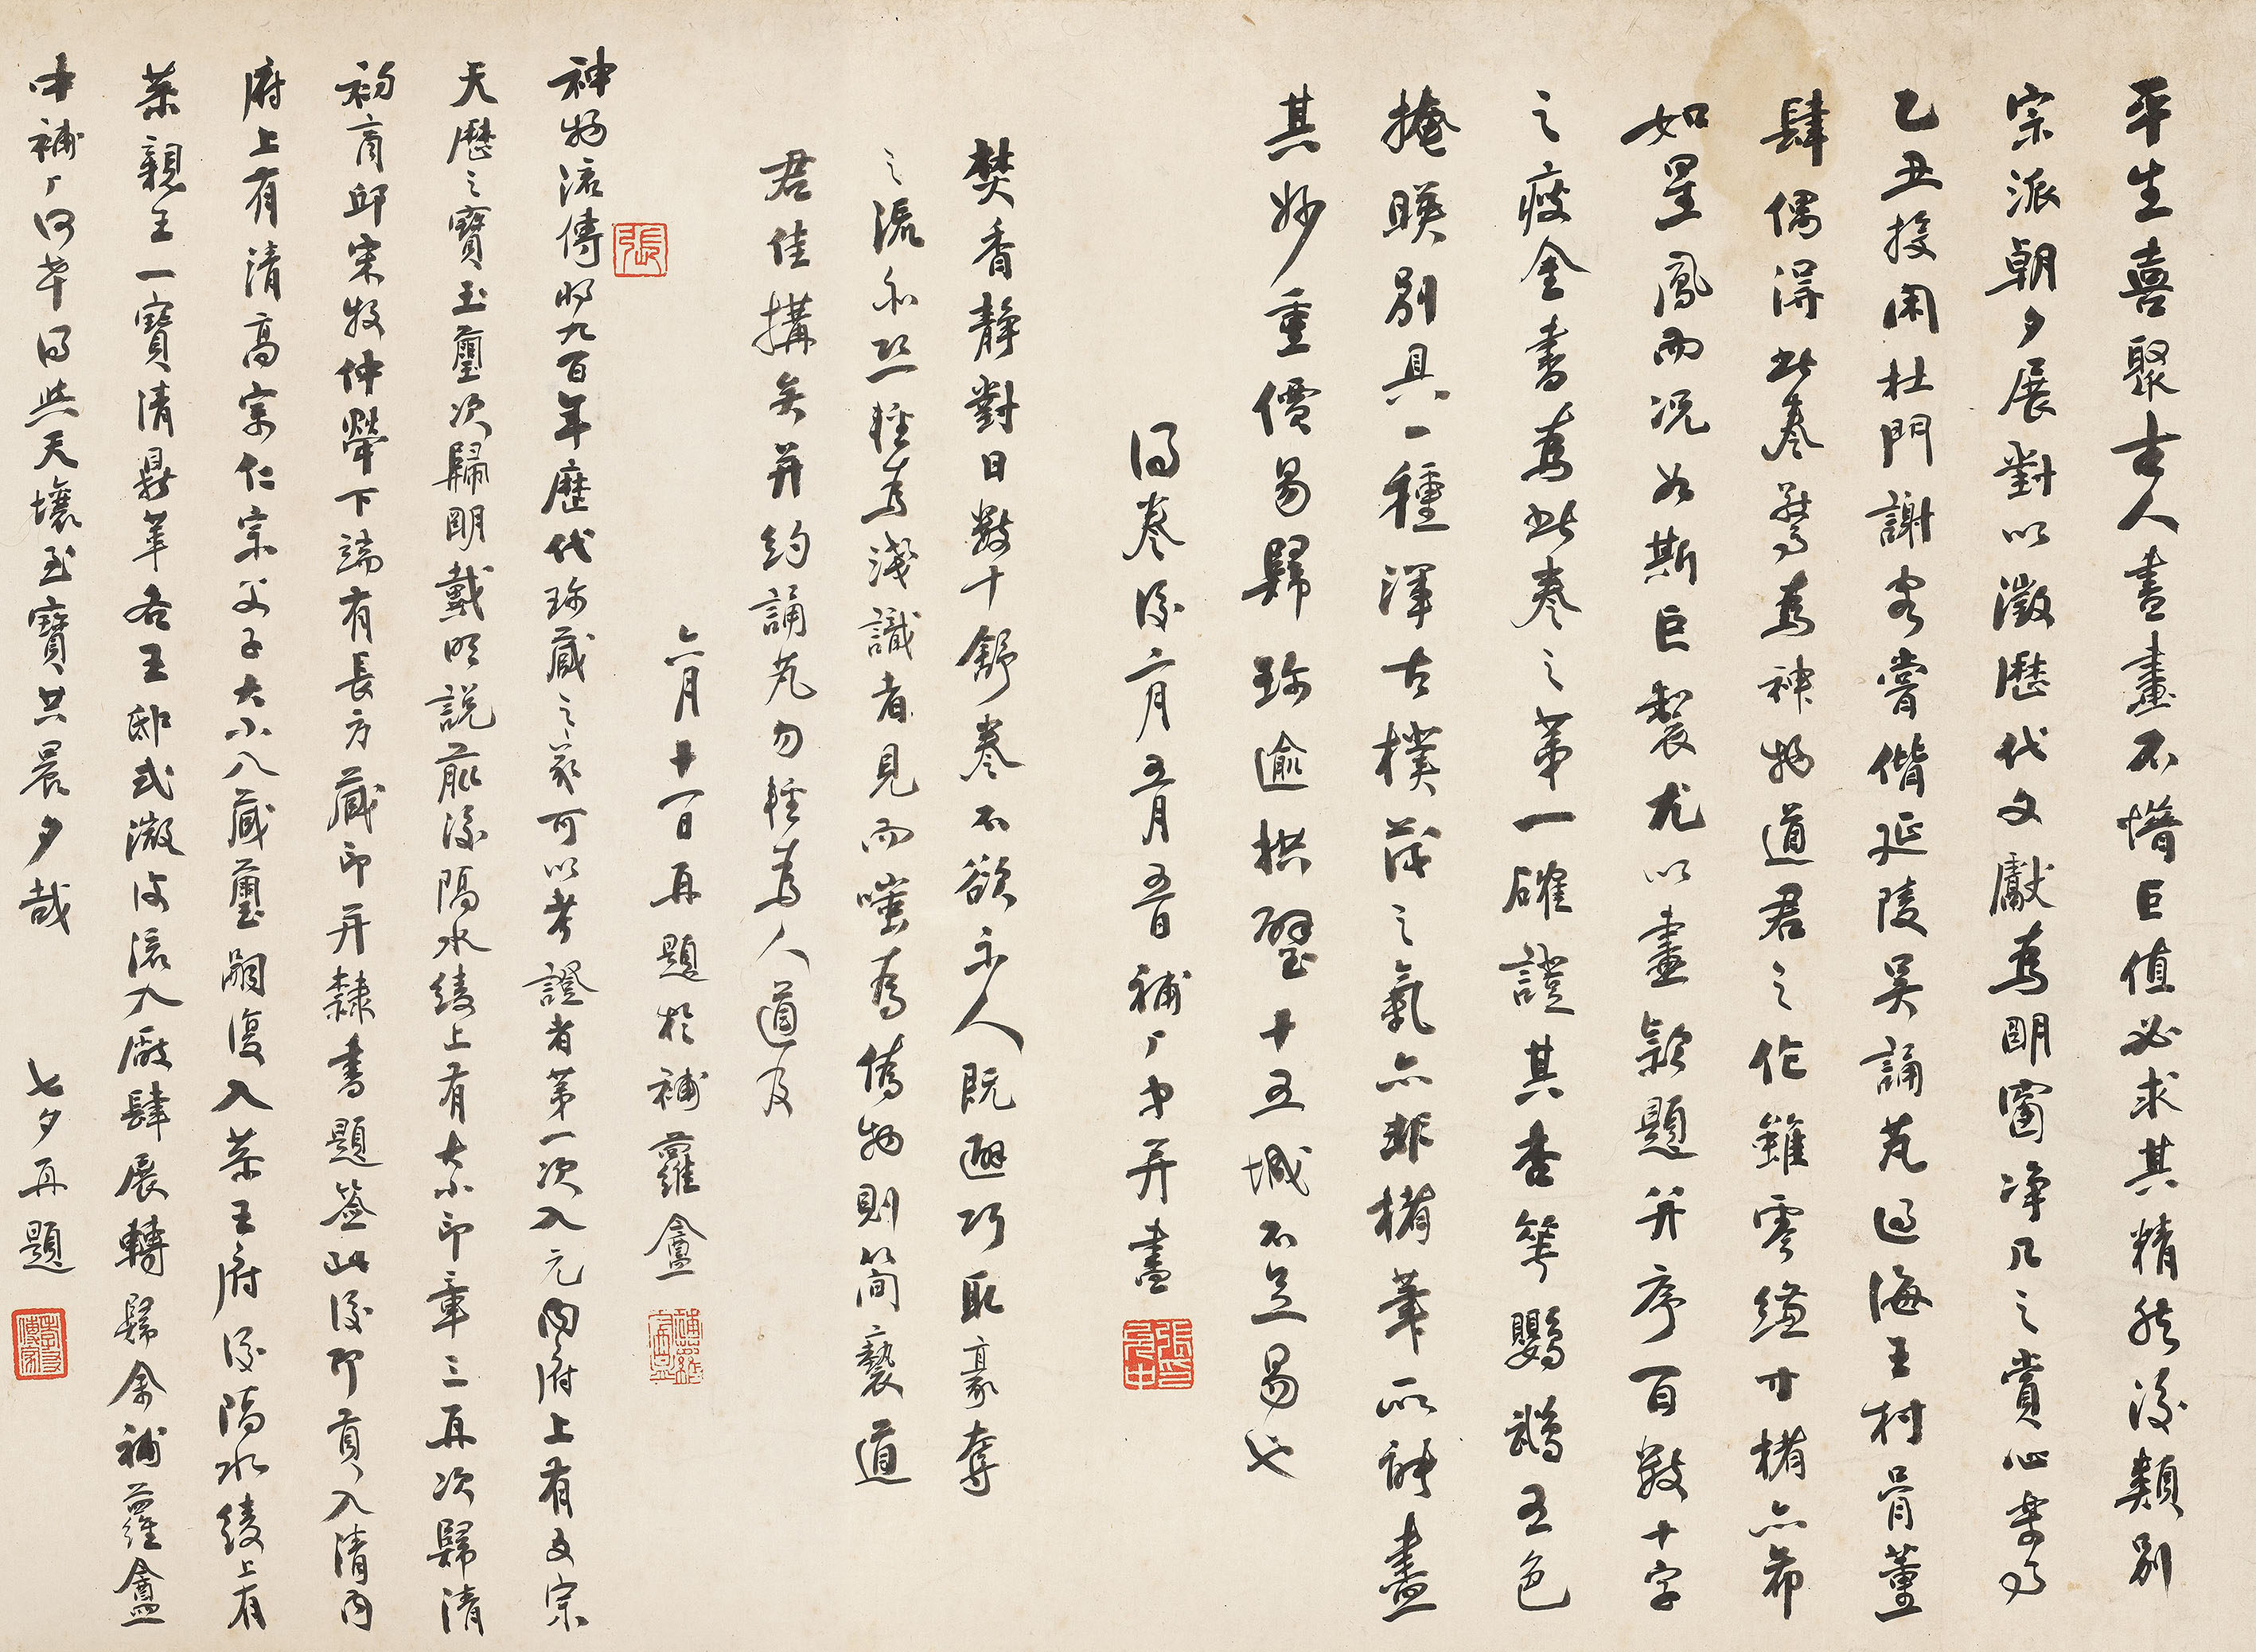 平生喜聚古人書畫不惜巨值必求其精然後類別
宗派朝夕展對以徵歷代文獻為明窗淨几之賞心樂事
乙丑投閑杜門謝客嘗偕延陵吳誦芃過海王村骨董
肆偶得此卷驚為神物道君之作雖零縑寸楮亦希
如星鳳而況如斯巨製尤以畫款題并序百數十字
之瘦金書為此卷之第一確證其杏華鸚鵡五色
掩暎別具一種渾古樸茂之氣亦非楮筆所能盡
其妙重價易歸珍逾拱璧十五城不足易也
得卷後六月五月五日補厂中并書
焚香靜對日數十舒卷不欲示人既避巧取豪奪
之流亦恐輕為淺識者見而嗤為偽物則簡褻道
君佳搆矣并約誦芃勿輕為人道及
六月十一日再題於補蘿盦
神物流傳將九百年歷代珍藏之家可以考證者第一次入元內府上有文宗
天歷之寶玉璽次歸明戴明說前後隔水綾上有大小印章三再次歸清
初商邱宋牧仲犖下端有長方藏印并隸書題簽此後即貢入清內
府上有清高宗仁宗父子大小八藏璽嗣復入恭王府後隔水綾上有
恭親王一寶清鼎革各王邸式微後流入廠肆展轉歸余補蘿盦
中補厂何幸得與天壤至寶共晨夕哉 七夕再題